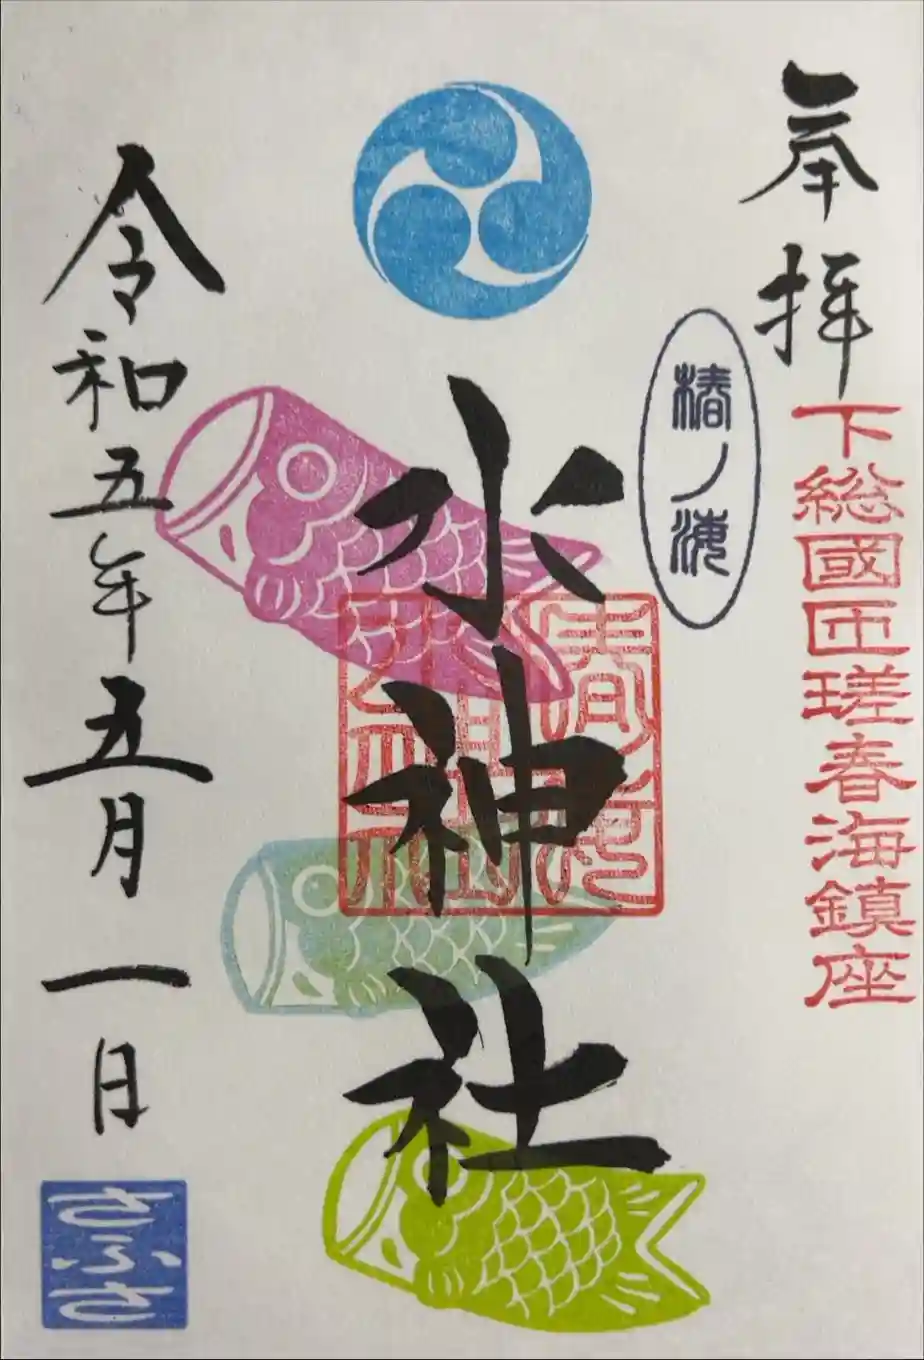 奉拝
下総國匝瑳春海鎮座
椿ノ海
水神社
令和五年五月一日
さふさ